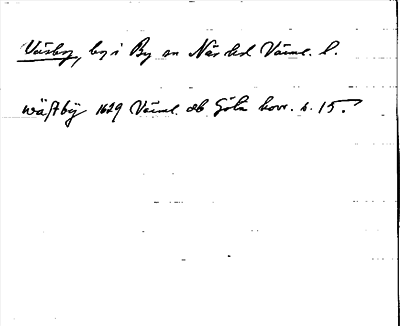 Väsby, by i By sn Näs hd. Värml. l.
Wästbÿ 1629 Värml. ab Göta hovr. s. 15.